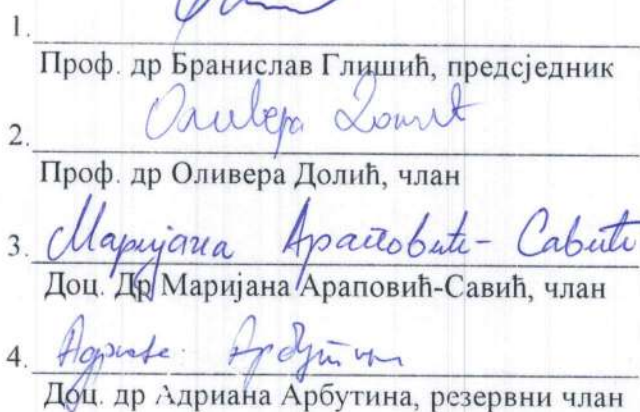 1.
Проф. др Бранислав Глишић, предсједник
Оливера Долић
2.
Проф. др Оливера Долић, члан
3. Маријана Араповић-Савић
Доц. Др Маријана Араповић-Савић, члан
4. Адриана Арбутина
Доц. др Адриана Арбутина, резервни члан